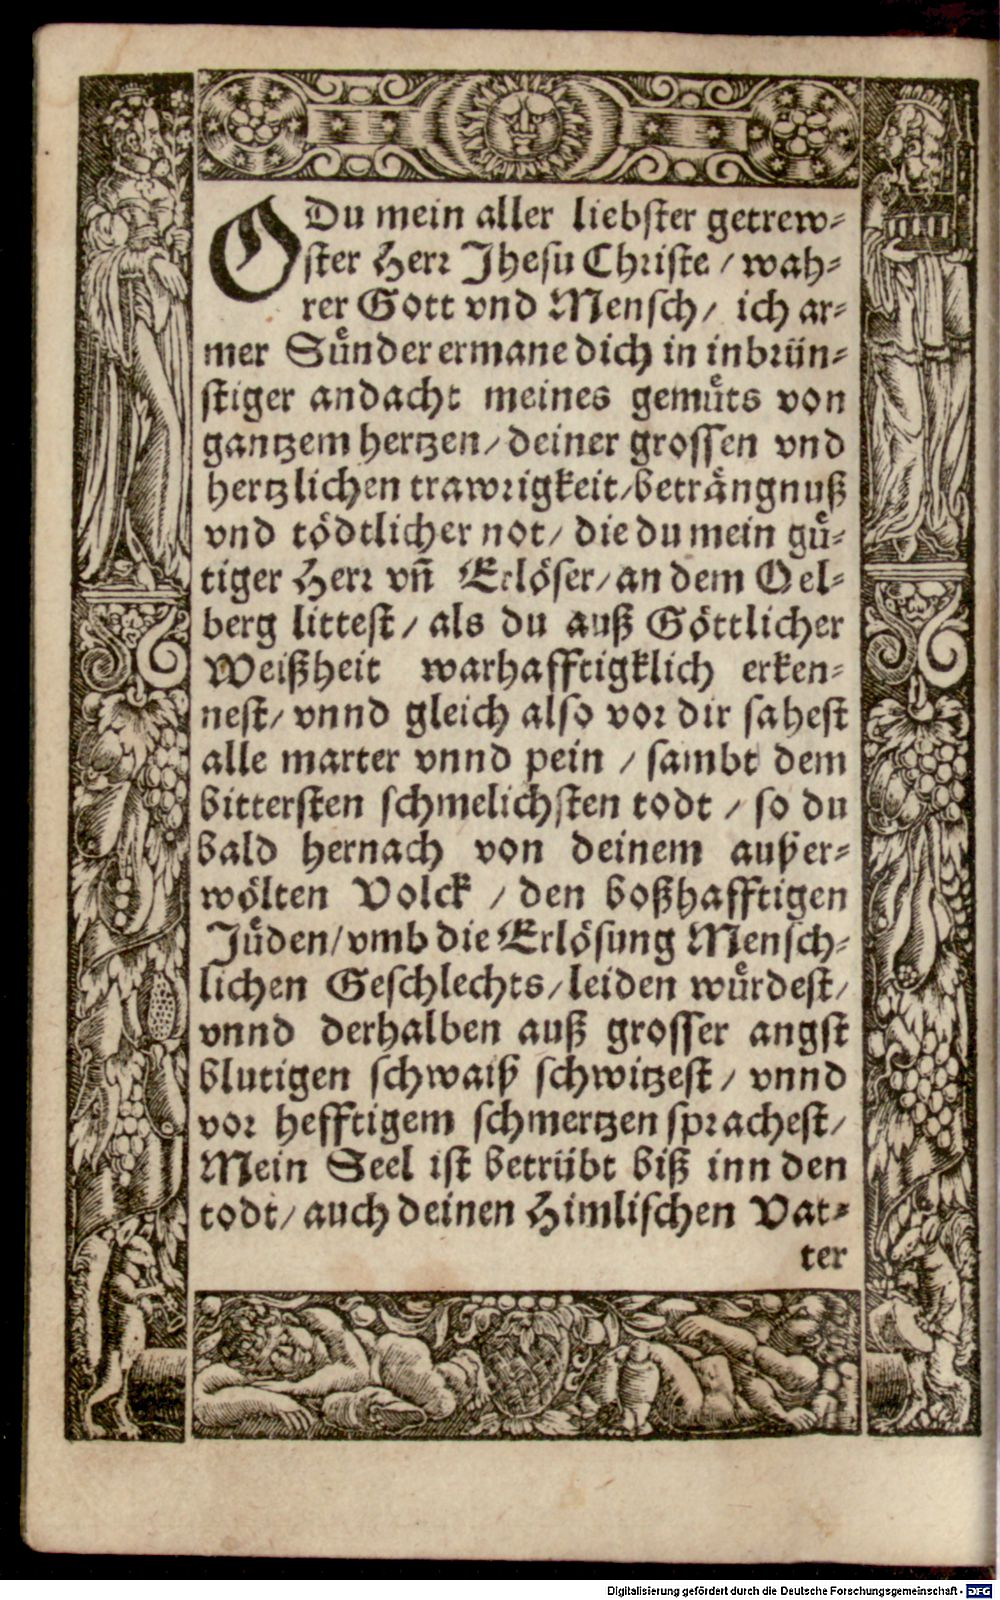 O Du mein aller liebster getrew-
ster Herr Jhesu Christe / wah-
rer Gott vnd Mensch / ich ar-
mer Sůnder ermane dich in inbrün-
stiger andacht meines gemůts von
gantzem hertzen / deiner grossen vnd
hertzlichen trawrigkeit / beträngnuß
vnd tödtlicher not / die du mein gů-
tiger Herr vñ Erlöser / an dem Oel-
berg littest / als du auß Göttlicher
Weißheit warhafftigklich erken-
nest / vnnd gleich also vor dir sahest
alle marter vnnd pein / sambt dem
bittersten schmelichsten todt / so du
bald hernach von deinem außer-
wölten Volck / den boßhafftigen
Jůden / vmb die Erlösung Mensch-
lichen Geschlechts / leiden wůrdest /
vnnd derhalben auß grosser angst
blutigen schwaiß schwitzest / vnnd
vor hefftigem schmertzen sprachest /
Mein Seel ist betrübt biß inn den
todt / auch deinen Himlischen Vat-
ter
Digitalisierung gefördert durch die Deutsche Forschungsgemeinschaft - DFG